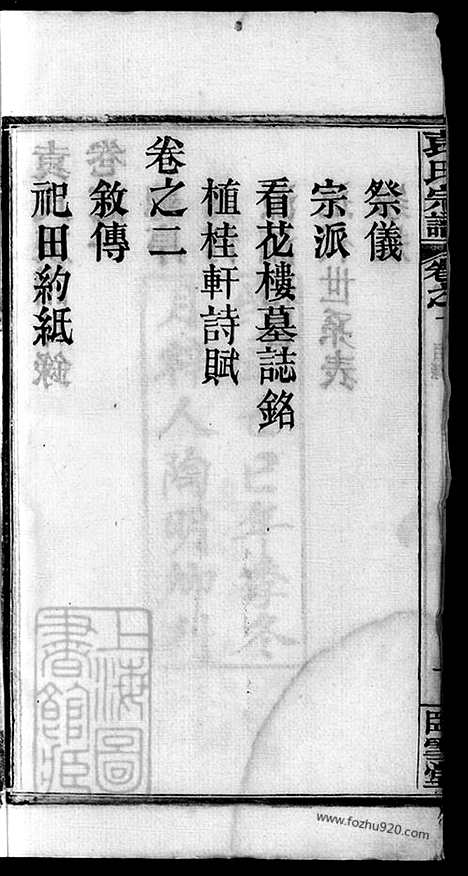 袁氏宗譜
卷之一
祭儀
宗派
看花樓墓誌銘
植桂軒詩賦
卷之二
敘傳
祀田約紙
上海圖書館藏
www.fozhu920.com